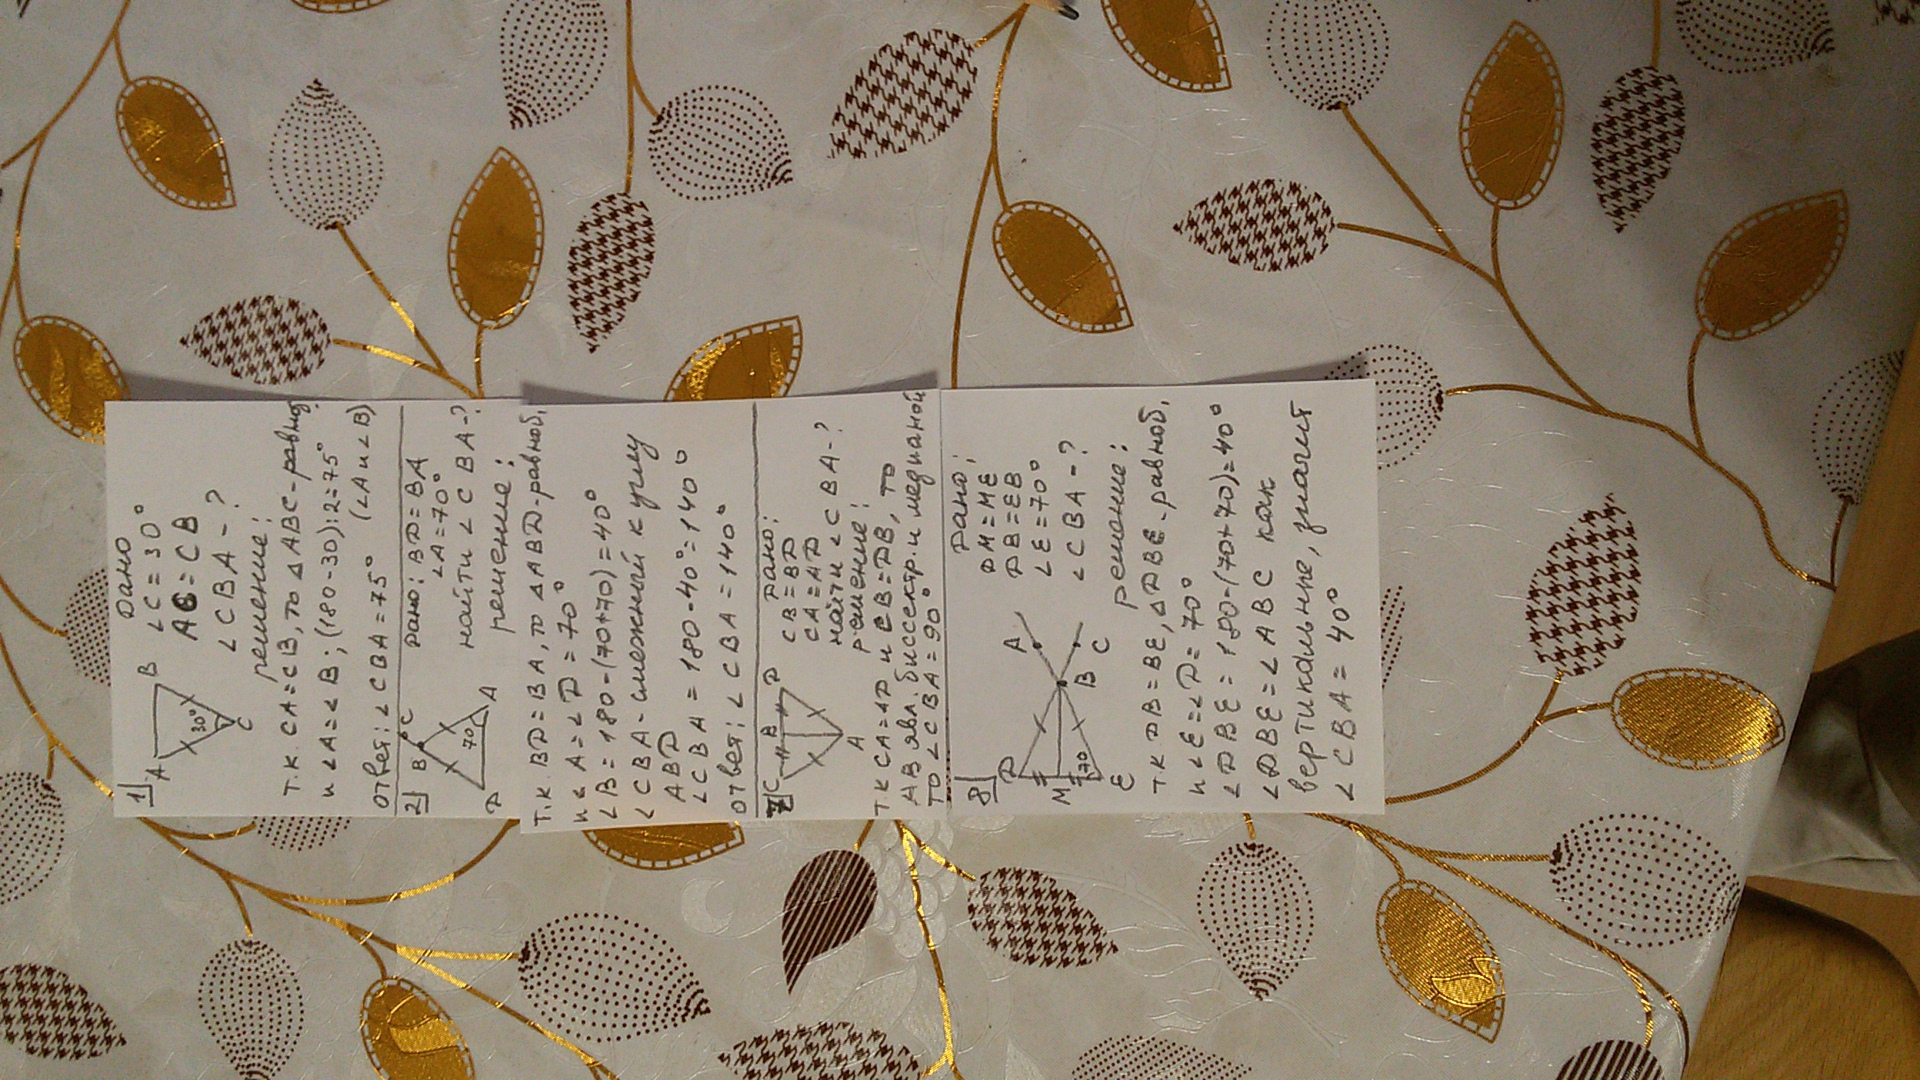 1) Дано
∠C = 30°
AC = CB
∠CBA - ?
A B C 30°
решение:
т.к. CA = CB, то △ABC - равноб
и ∠A = ∠B; (180-30):2 = 75°
(∠A и ∠B)
ответ: ∠CBA = 75°
2) Дано: BD = BA
∠A = 70°
найти ∠CBA - ?
B C D A 70
решение:
т.к. BD = BA, то △ABD - равноб,
и ∠A = ∠D = 70°
∠B = 180 - (70+70) = 40°
∠CBA - смежный к углу
ABD
∠CBA = 180 - 40° = 140°
ответ: ∠CBA = 140°
7) Дано:
CB = BD
CA = AD
найти ∠CBA - ?
C B D A
решение:
т к CA = AD и CB = DB, то
AB явл. биссектр. и медианой
то ∠CBA = 90°
8) Дано:
DM = ME
DB = EB
∠E = 70°
∠CBA - ?
D M E A B C 70
решение:
т к DB = BE, △DBE - равноб,
и ∠E = ∠D = 70°
∠DBE = 180 - (70+70) = 40°
∠DBE = ∠ABC как
вертикальные, значит
∠CBA = 40°